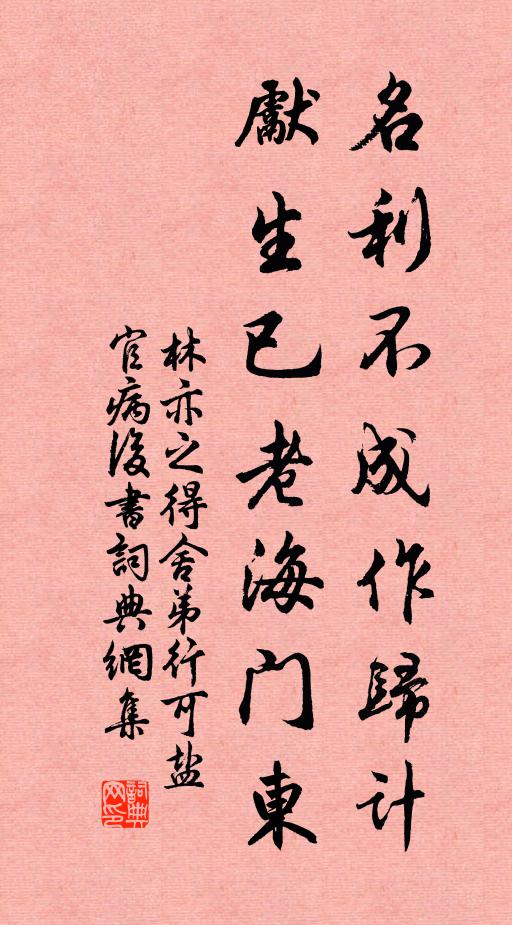 名利不成作歸計
獻生已老海門東
林亦之得舍弟行可盐
官病後書詞典網集
詞典网印